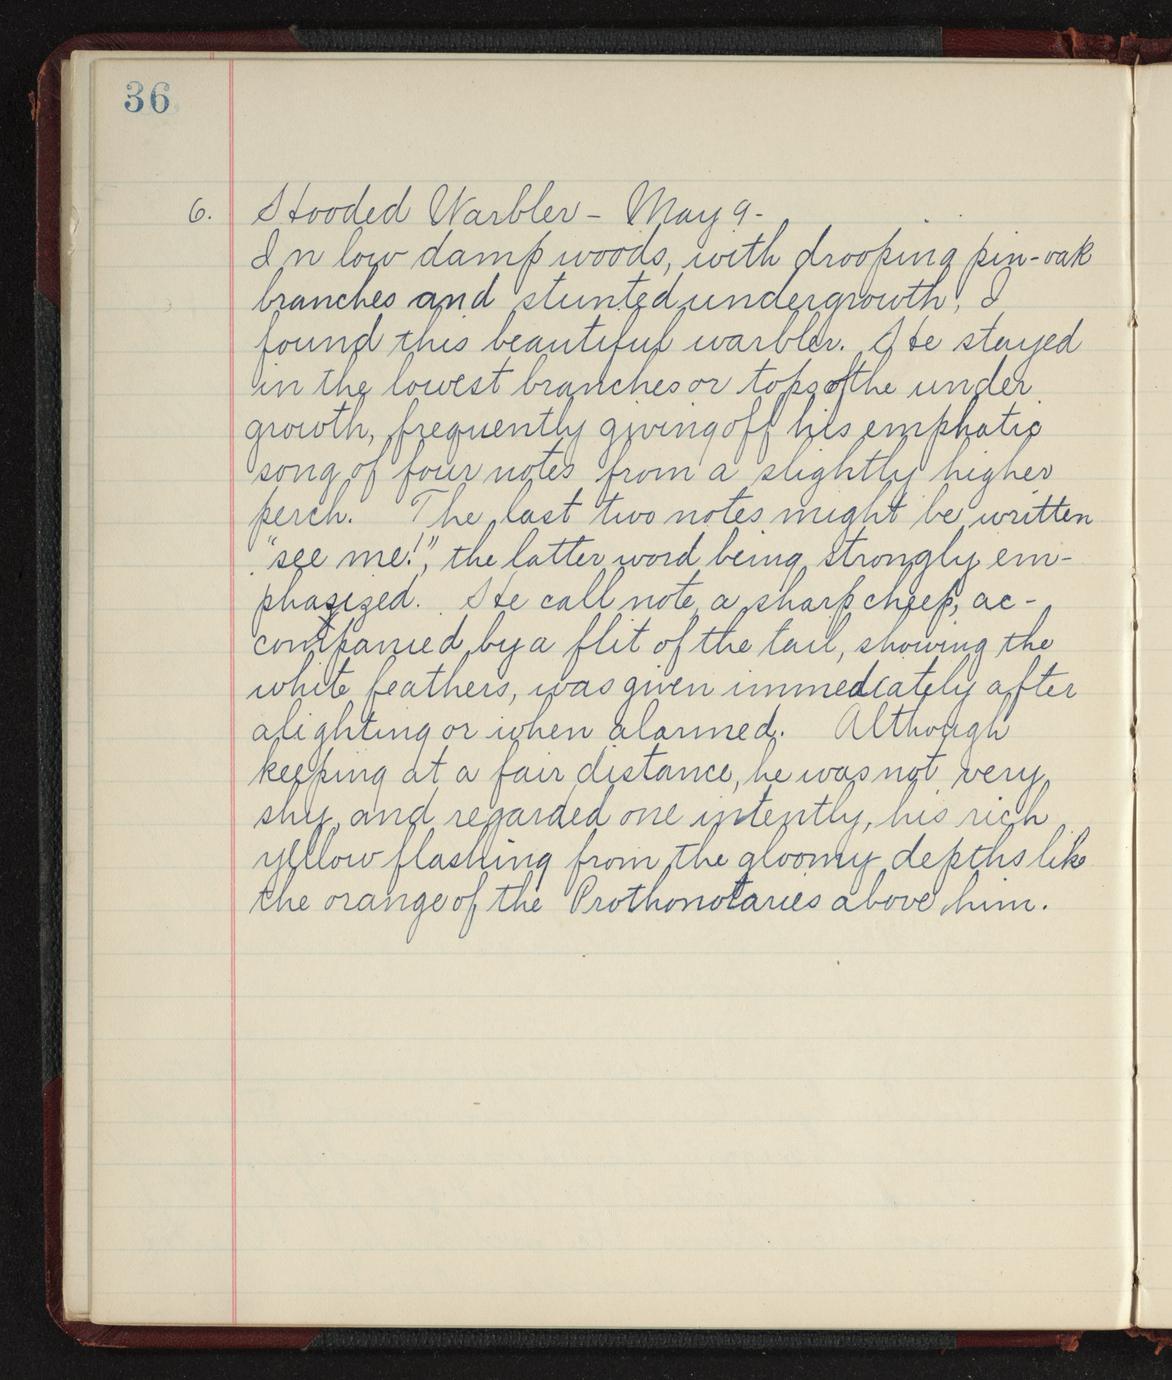 36
6. Hooded Warbler - May 9.
In low damp woods, with drooping pin-oak
branches and stunted undergrowth, I
found this beautiful warbler. He stayed
in the lowest branches or tops of the under
growth, frequently giving off his emphatic
song of four notes from a slightly higher
perch. The last two notes might be written
"see me!", the latter word being strongly em-
phasized. He call note, a sharp cheep, ac-
companied by a flit of the tail, showing the
white feathers, was given immediately after
alighting or when alarmed. Although
keeping at a fair distance, he was not very
shy, and regarded one intently, his rich
yellow flashing from the gloomy depths like
the orange of the Prothonotaries above him.